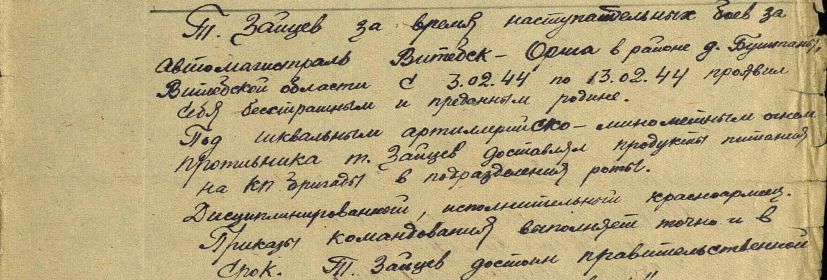 Т. Зайцев за время наступательных боев за
автомагистраль Витебск - Орша в районе д. Буштаны,
Витебской области с 3.02.44 по 13.02.44 проявил
себя бесстрашным и преданным родине.
Под шквальным артиллерийско-минометным огнем
противника т. Зайцев доставлял продукты питания
на КП бригады в подразделения роты.
Дисциплинированный, исполнительный красноармеец.
Приказы командования выполняет точно и в
срок. Т. Зайцев достоин правительственной